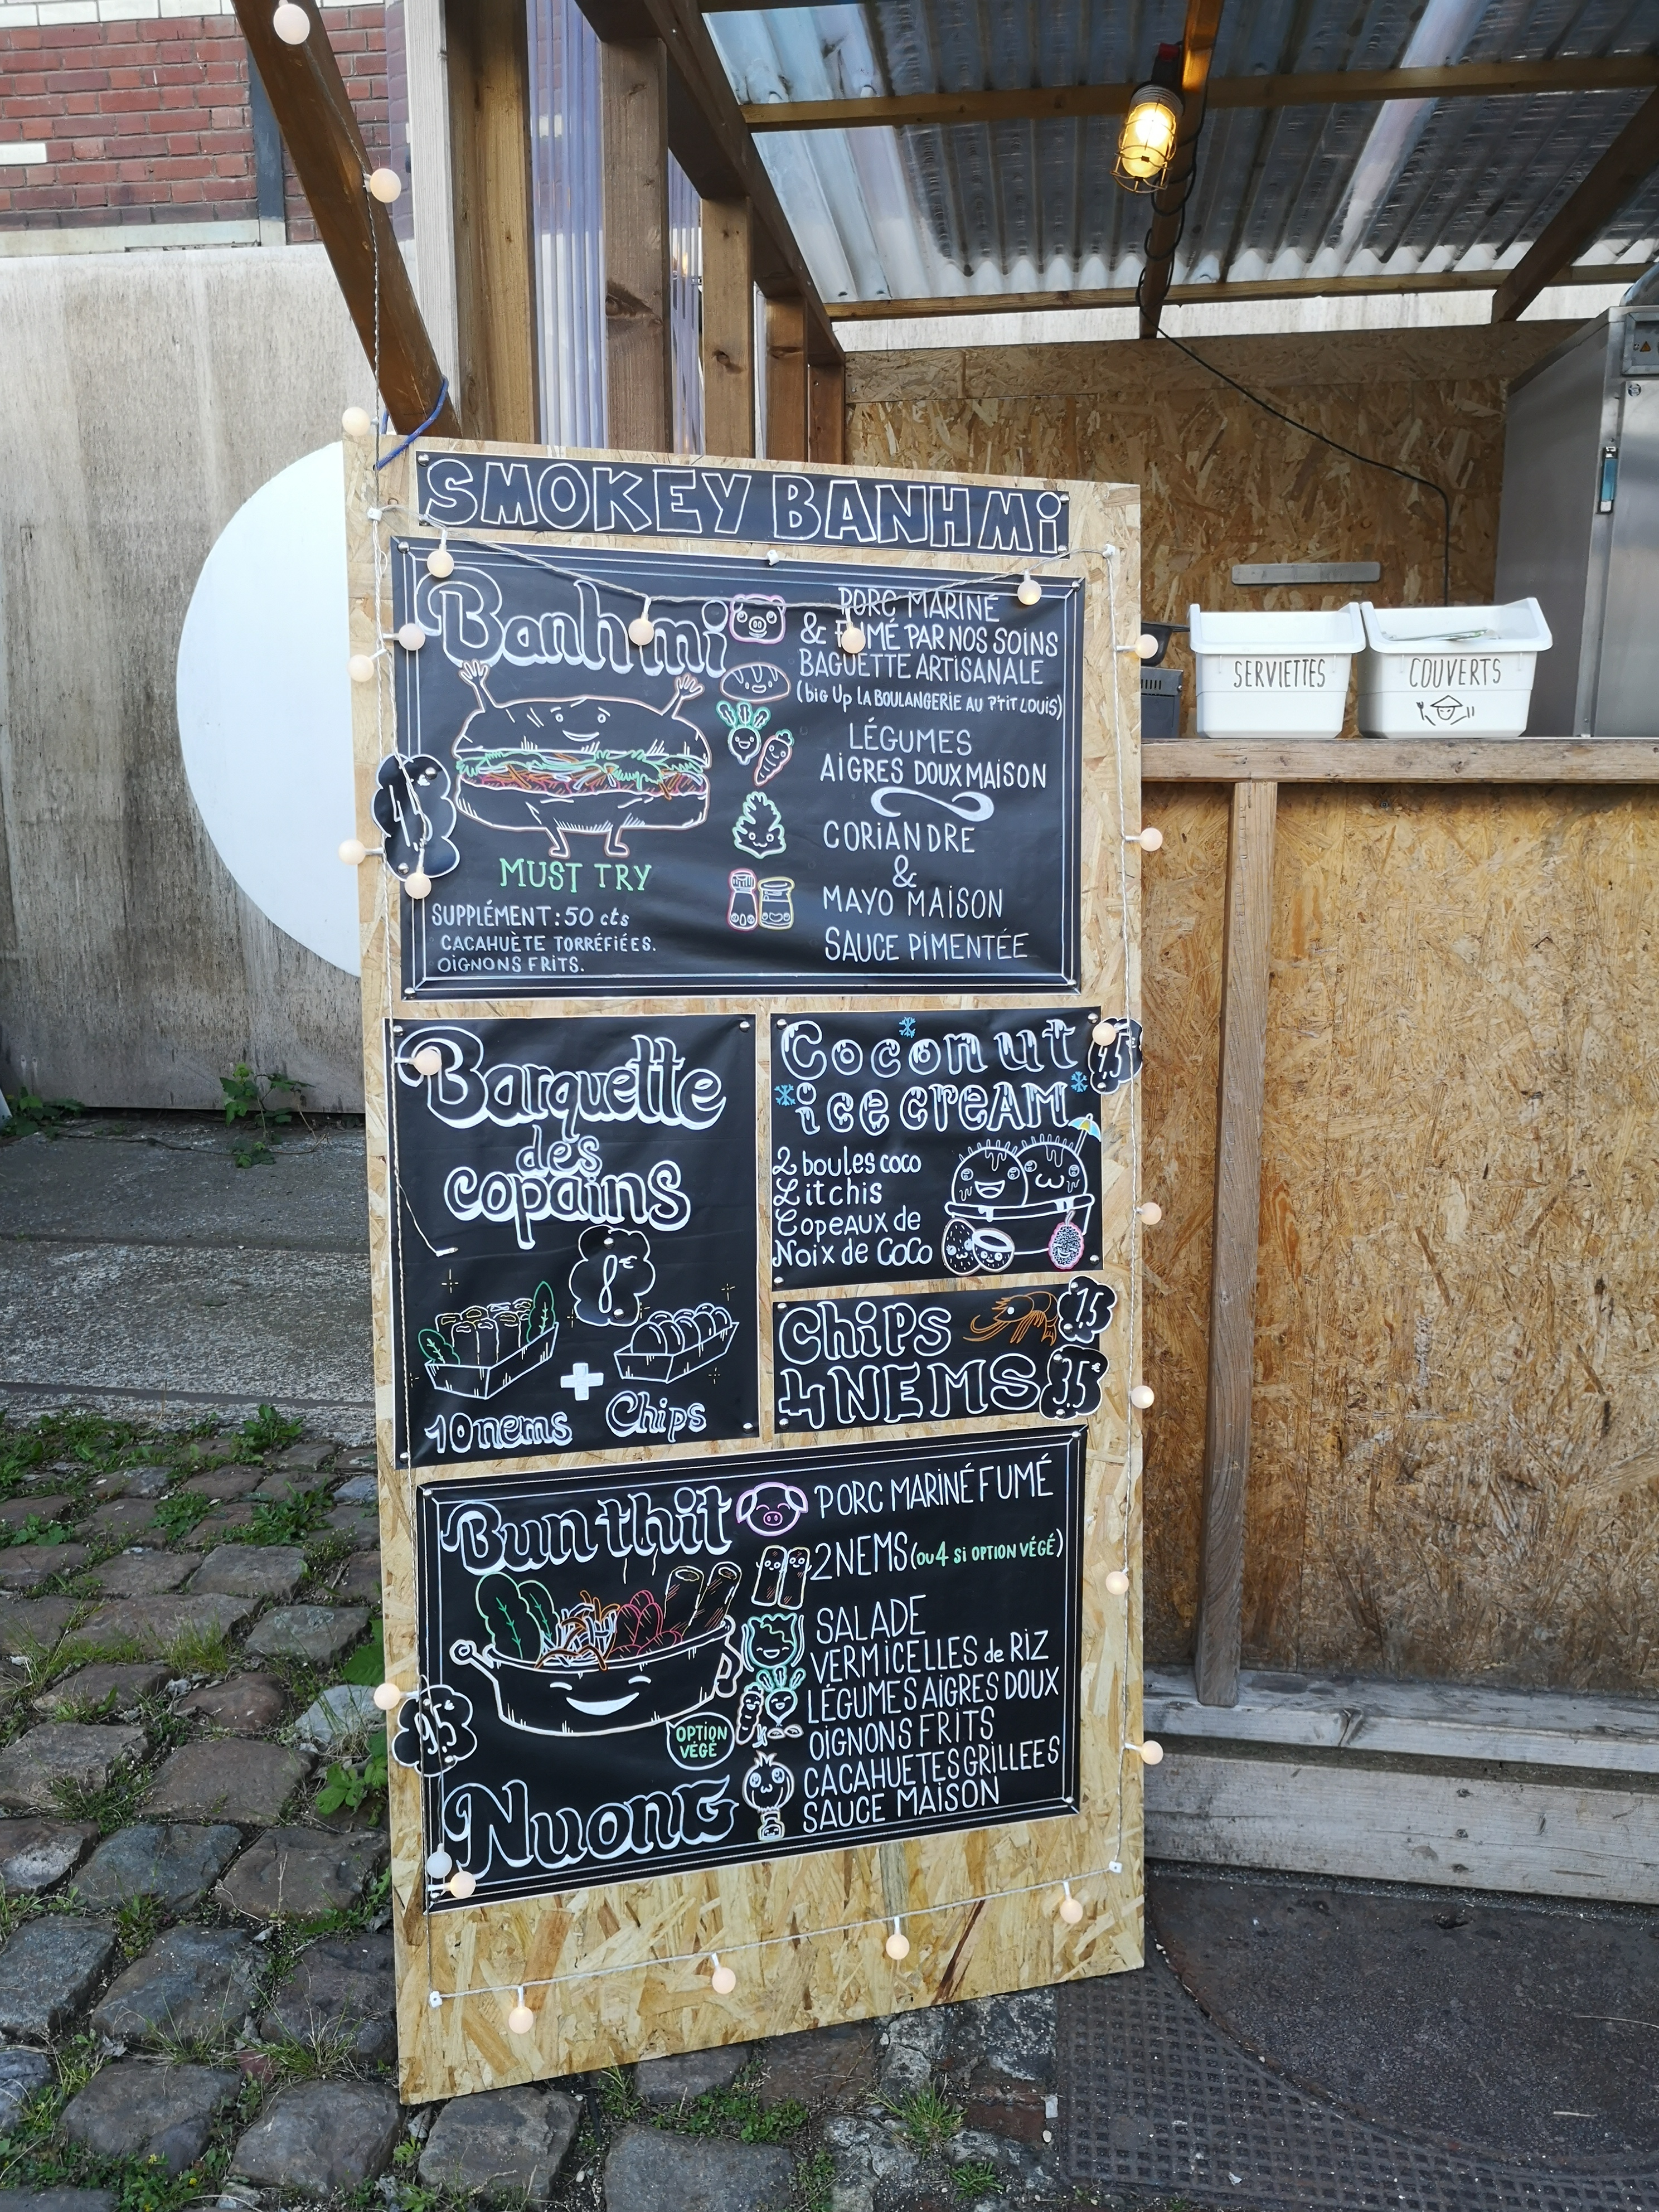 SMOKEY BANH Mi
Banh mi
PORC MARINÉ
& FUMÉ PAR NOS SOINS
BAGUETTE ARTISANALE
(big Up LA BOULANGERIE AU P'tit LOUIS)
LÉGUMES
AIGRES DOUX MAISON
CORIANDRE
&
MAYO MAISON
SAUCE PIMENTÉE
MUST TRY
SUPPLÉMENT : 50 cts
CACAHUÈTE TORRÉFIÉES.
OIGNONS FRITS.
Barquette
des
copains
8€
10 nems + Chips
Coconut
ice cream
2 boules coco
Litchis
Copeaux de
Noix de COCO
Chips
4 NEMS
3,5€
Bun thit
Nuong
9,5
OPTION
VÉGÉ
PORC MARINÉ FUMÉ
2 NEMS (ou 4 si OPTION VÉGÉ)
SALADE
VERMICELLES de RIZ
LÉGUMES AIGRES DOUX
OIGNONS FRITS
CACAHUETES GRILLEES
SAUCE MAISON
SERVIETTES
COUVERTS